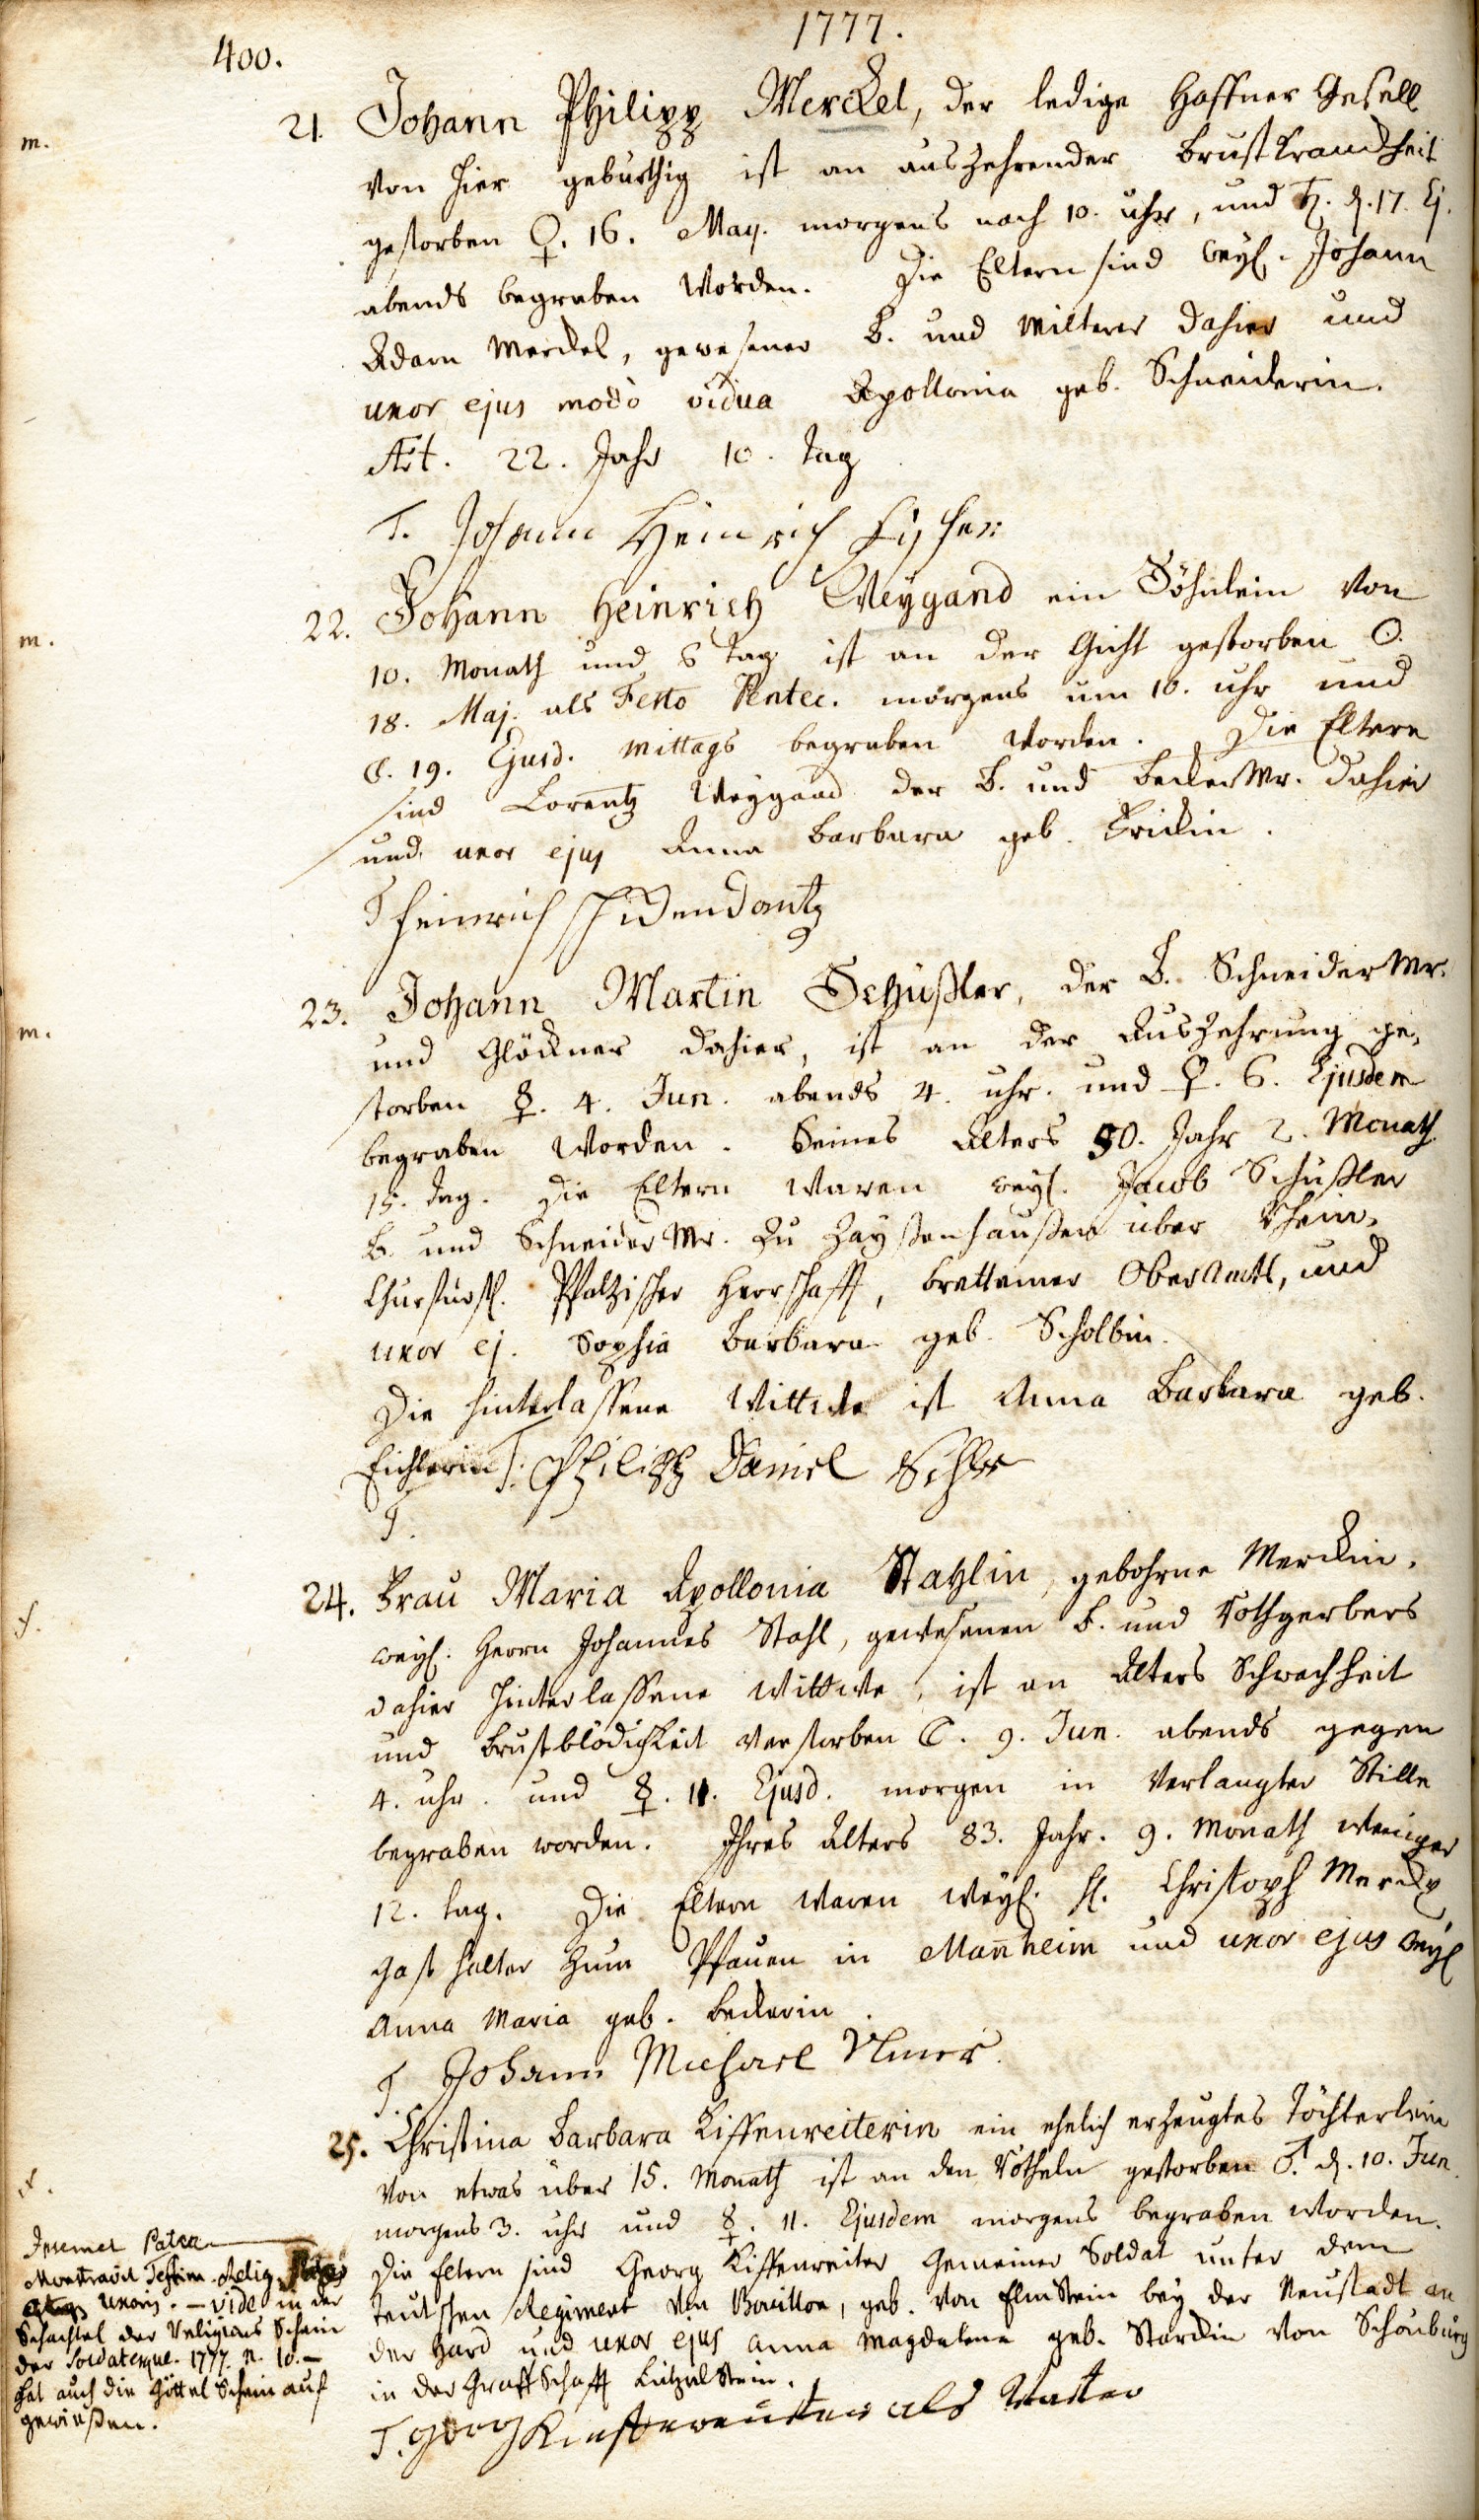 1777.
400.
m.
21. Johann Philipp Merckel, der ledige Haffner Gesell
von hier gebürthig ist an auszehrender Brustkranckheit
gestorben ♀. 16. May. morgens nach 10. uhr, und ♄. d. 17. Ej.
abends begraben worden. Die Eltern sind weyl. Johann
Adam Merckel, gewesener B. und dahier und
uxor ejus modò vidua Apollonia geb. Schneiderin.
Æt. 22. Jahr 10. Tag
T. Johann Heinrich
m.
22. Johann Heinrich Weygand ein Söhnlein von
10. Monath und 8 Tag ist an der Gicht gestorben ☉.
18. Maj. als Festo Pentec. morgens um 10. uhr und
☾. 19. Ejusd. mittags begraben worden. Die Eltern
sind Lorentz Weygand der B. und BeckerMr. dahier
und uxor ejus Anna Barbara geb.
T Heinrich
m.
23. Johann Martin Schüßler, der B. SchneiderMr.
und Glöckner dahier, ist an der Auszehrung ge-
storben ☿. 4. Jun. abends 4. uhr. und ♀. 6. Ejusdem
begraben worden. Seines Alters 50. Jahr 2. Monath
15. Tag. Die Eltern waren weyl. Jacob Schüßler
B. und Schneider Mr. zu Zaysenhaußen über Rhein,
Churfürstl. Pfaltzischer Herrschafft, Brettemer OberAmts, und
uxor ej. Sophia Barbara geb. Scholbin.
Die hinterlassene Wittwe ist Anna Barbara geb.
Eichlerin T. Philipp Daniel
T.
f.
24. Frau Maria Apollonia Stahlin, gebohrne Merckin,
weyl. Herrn Johannes Stahl, gewesenen B. und Rothgerbers
dahier hinterlassene Wittwe, ist an Alters Schwachheit
und Brustblödigkeit verstorben ☾. 9. Jun. abends gegen
4. uhr. und ☿. 11. Ejusd. morgen in verlangter Stille
begraben worden. Ihres Alters 83. Jahr. 9. Monath weniger
12. Tag. Die Eltern waren weyl. H. Christoph Merck,
Gasthalter zum Pfauen in Mañheim und uxor ejus weyl
Anna Maria geb. Beckerin.
T. Johann Michael Ulmer.
f.
25. Christina Barbara Kiffenreiterin ein ehelich erzeugtes Töchterlein
von etwas über 15. Monath ist an den Rötheln gestorben ♂. d. 10. Jun.
morgens 3. uhr und ☿. 11. Ejusdem morgens begraben worden.
Die Eltern sind Georg Kiffenreiter Gemeiner Soldat unter dem
Teutschen Regiment von Bouillon, geb. von Elmstein bey der Neustadt an
der Hard und uxor ejus Anna Magdalena geb. Starckin von Schönburg
in der Graffschafft Lützelstein.
T. Georg als Vatter
Pater
Monstravit Testim. Relig.
uxoris. — vide in der
Schachtel der Religions Schein
der Soldatesque. 1777. n. 10. —
hat auch die Göttel Schein auf
gewießen.